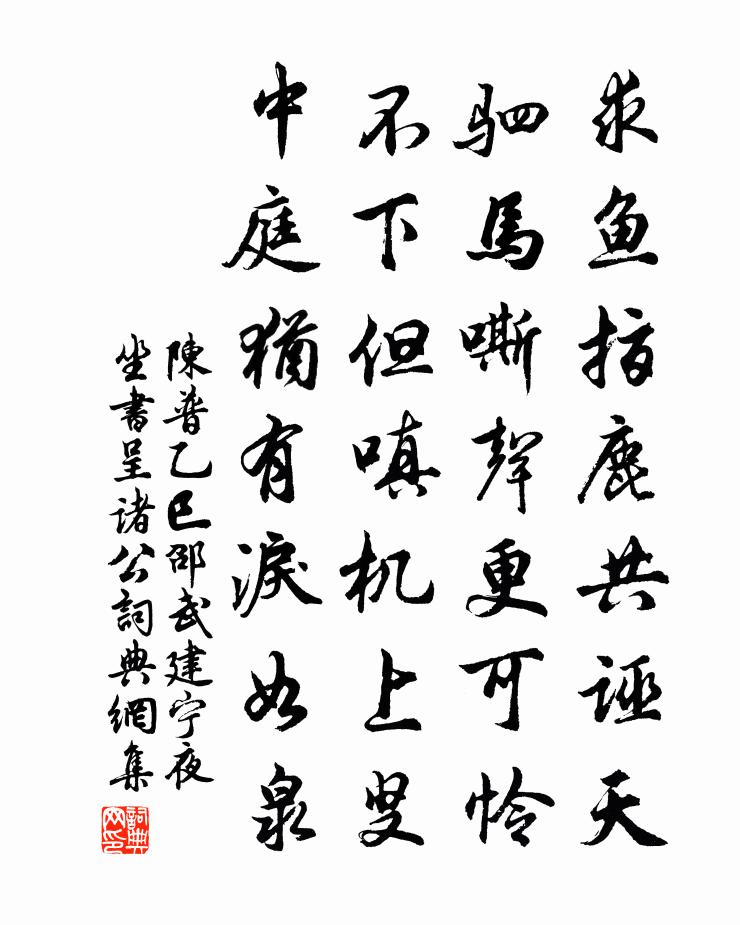 求鱼指鹿共誣天
驷馬嘶聲更可怜
不下但嗔机上叟
中庭猶有淚如泉
陳普乙巳邵武建宁夜
坐書呈诸公詞典網集
詞典网印